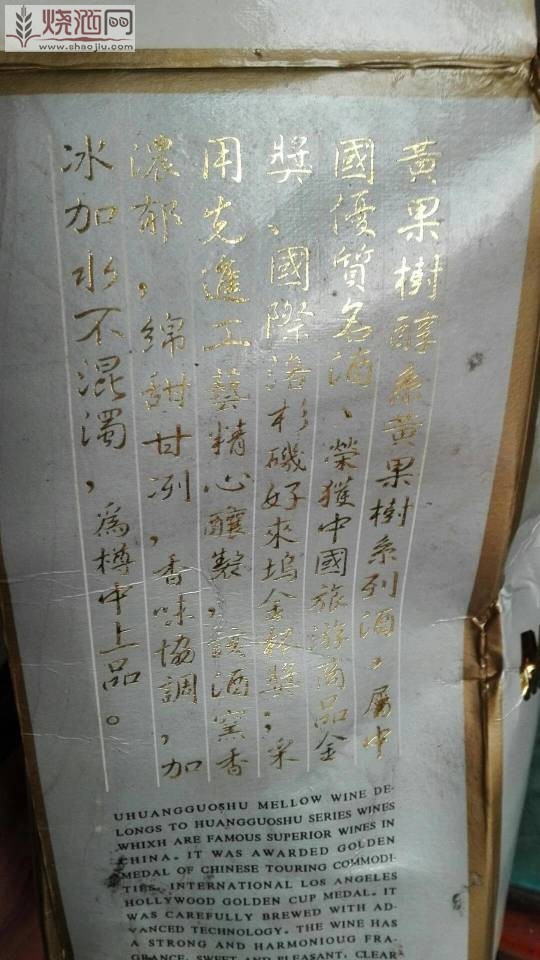 烧酒网
www.shaojiu.com
黃果樹醇系黃果樹系列酒，屬中
國優質名酒、榮獲中國旅游商品金
獎、國際洛杉磯好來塢金杯獎；采
用先進工藝精心釀製，該酒窯香
濃郁，綿甜甘冽，香味協調，加
冰加水不混濁，為樽中上品。
UHUANGGUOSHU MELLOW WINE DE-
LONGS TO HUANGGUOSHU SERIES WINES
WHIXH ARE FAMOUS SUPERIOR WINES IN
CHINA. IT WAS AWARDED GOLDEN
MEDAL OF CHINESE TOURING COMMODI-
TIES, INTERNATIONAL LOS ANGELES
HOLLYWOOD GOLDEN CUP MEDAL. IT
WAS CAREFULLY BREWED WITH AD-
VANCED TECHNOLOGY. THE WINE HAS
A STRONG AND HARMONIOUG FRA-
GRANCE, SWEET AND PLEASANT, CLEAR